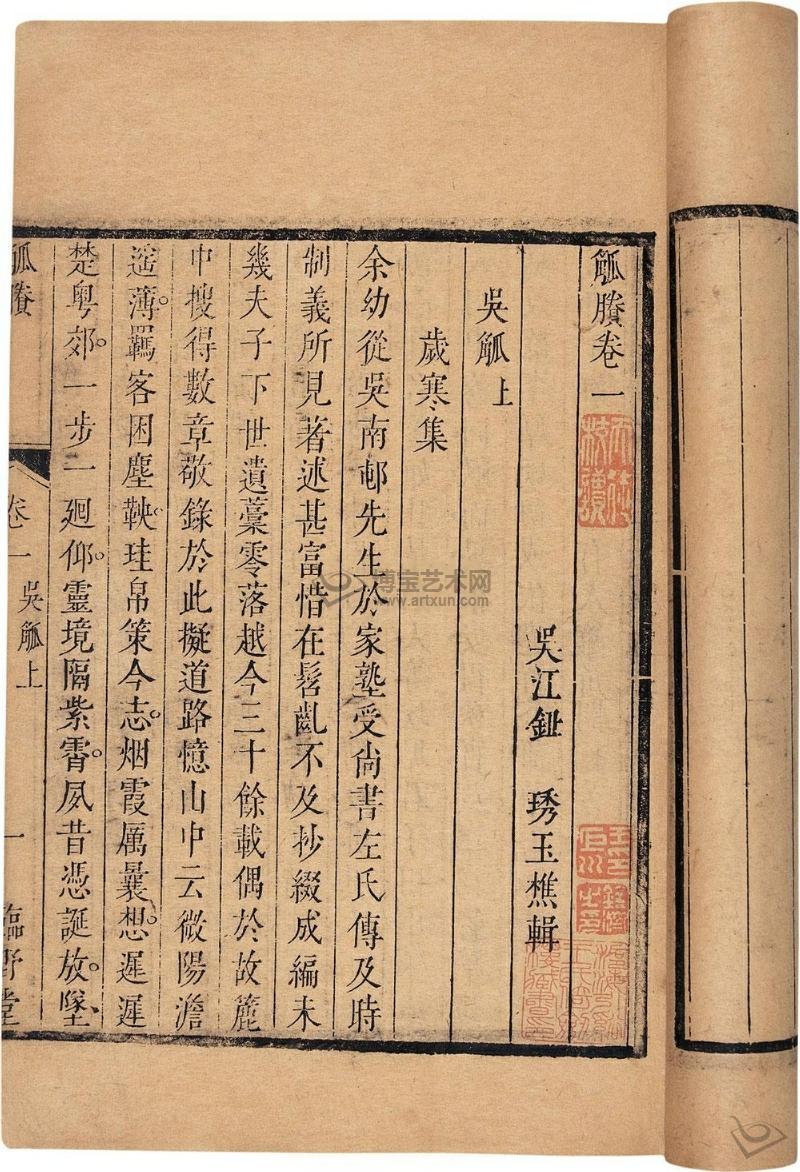 觚賸卷一
吳江鈕　琇玉樵輯
吳觚上
歲寒集
余幼從吳南邨先生於家塾受尙書左氏傳及時
制義所見著述甚富惜在髫齓不及抄綴成編未
幾夫子下世遺藁零落越今三十餘載偶於故簏
中搜得數章敬錄於此擬道路憶山中云微陽澹
遥薄。羈客困塵鞅。珪帛策今志。烟霞厲曩想。遲遲
楚粤郊。一步一廻仰。靈境隔紫霄。夙昔憑誕放。墜
觚賸
卷一
吳觚上
一
臨野堂
博宝艺术网
www.artxun.com